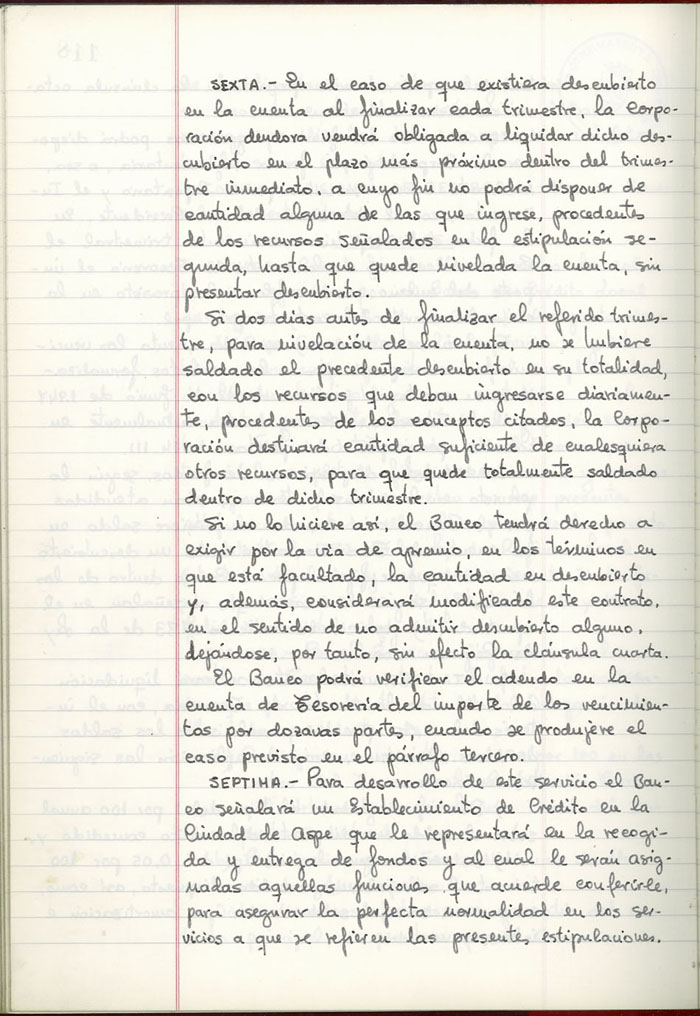 SEXTA.- En el caso de que existiera descubierto
en la cuenta al finalizar cada trimestre, la Corpo-
ración deudora vendrá obligada a liquidar dicho des-
cubierto en el plazo más próximo dentro del trimes-
tre inmediato, a cuyo fin no podrá disponer de
cantidad alguna de las que ingrese, procedentes
de los recursos señalados en la estipulación se-
gunda, hasta que quede nivelada la cuenta, sin
presentar descubierto.
Si dos dias antes de finalizar el referido trimes-
tre, para nivelación de la cuenta, no se hubiere
saldado el precedente descubierto en su totalidad,
con los recursos que deban ingresarse diariamen-
te, procedentes de los conceptos citados, la Corpo-
ración destinará cantidad suficiente de cualesquiera
otros recursos, para que quede totalmente saldado
dentro de dicho trimestre.
Si no lo hiciere así, el Banco tendrá derecho a
exigir por la via de apremio, en los términos en
que está facultado, la cantidad en descubierto
y, además, considerará modificado este contrato,
en el sentido de no admitir descubierto alguno,
dejándose, por tanto, sin efecto la cláusula cuarta.
El Banco podrá verificar el adeudo en la
cuenta de Tesorería del importe de los vencimien-
tos por dozavas partes, cuando se produjere el
caso previsto en el párrafo tercero.
SEPTIMA.- Para desarrollo de este servicio el Ban-
co señalará un Establecimiento de Crédito en la
Ciudad de Aspe que le representará en la recogi-
da y entrega de fondos y al cual le serán asig-
nadas aquellas funciones que acuerde conferirle,
para asegurar la perfecta normalidad en los ser-
vicios a que se refieren las presentes estipulaciones.